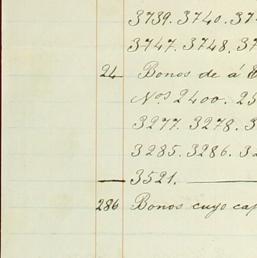 3739. 3740. 37
3747. 3748. 37
24 Bonos de á £
Nos 2400. 25
3277. 3278. 3
3285. 3286. 32
3521.
286 Bonos cuyo cap